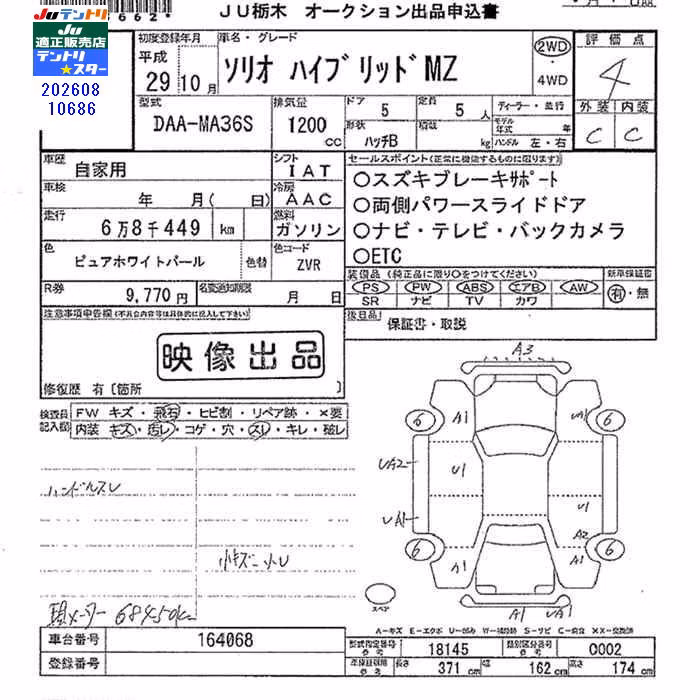 JU テントリ
JU
適正販売店
テントリ
★スター
202608
10686
JU栃木 オークション出品申込書
初度登録年月
平成
29年10月
車名・グレード
ソリオ ハイブリッドMZ
2WD
4WD
評価点
4
外装 内装
C C
型式
DAA-MA36S
排気量
1200
cc
ドア
5
定員
5人
形状
ハッチB
積載
kg
ディーラー・並行
モデル年式 年
ハンドル 左・右
車歴
自家用
シフト
IAT
車検
年 月( 日)
冷房
AAC
走行
6万8千449 km
燃料
ガソリン
色
ピュアホワイトパール
色替
色コード
ZVR
R券
9,770円
名変通知期限
月 日
セールスポイント(正常に機能するものに限ります)
○スズキブレーキサポート
○両側パワースライドドア
○ナビ・テレビ・バックカメラ
○ETC
装備品(純正品に限り○をつけてください)
PS PW ABS エアB AW
SR ナビ TV カワ
新車保証書
有・無
後日品
保証書・取説
注意事項申告欄(不具合内容等は具体的に記入して下さい)
映像出品
修復歴 有〔箇所 〕
検査員
記入欄
FW キズ・飛石・ヒビ割・リペア跡・×要
内装 キズ・汚レ・コゲ・穴・スレ・キレ・破レ
ハンドルスレ
小キズ
現メーター 68450km
A3
6 A1 UA1 6
UA2 U1
UA1 U1
A2
6 A1 A1 6
スペア
A1 UA1
A-キズ E-エクボ U-凹み W-補修跡 S-サビ C-腐食 XX-交換済
車台番号
164068
登録番号
型式指定番号
参考
18145
類別区分番号
参考
0002
車検証規格
参考
長さ
371 cm
幅
162 cm
高さ
174 cm